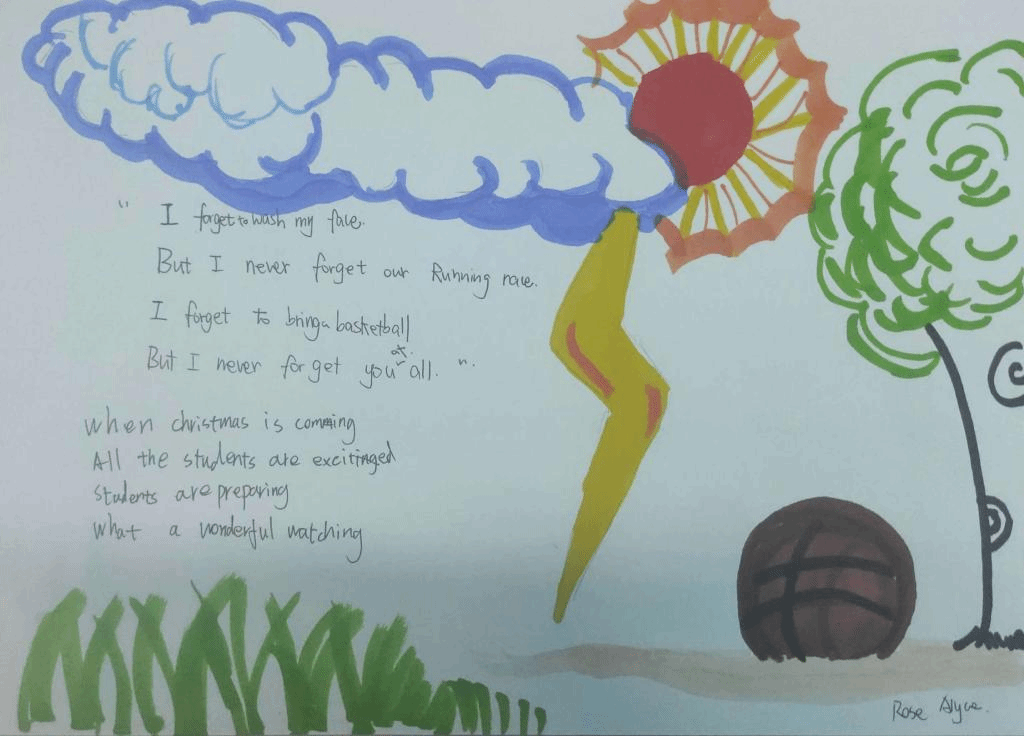 " I forget to wash my face.
But I never forget our Running race.
I forget to bring a basketball
But I never forget you at all. ".
When christmas is comming
All the students are excitinged
students are preparing
what a wonderful watching
Rose Alyce.